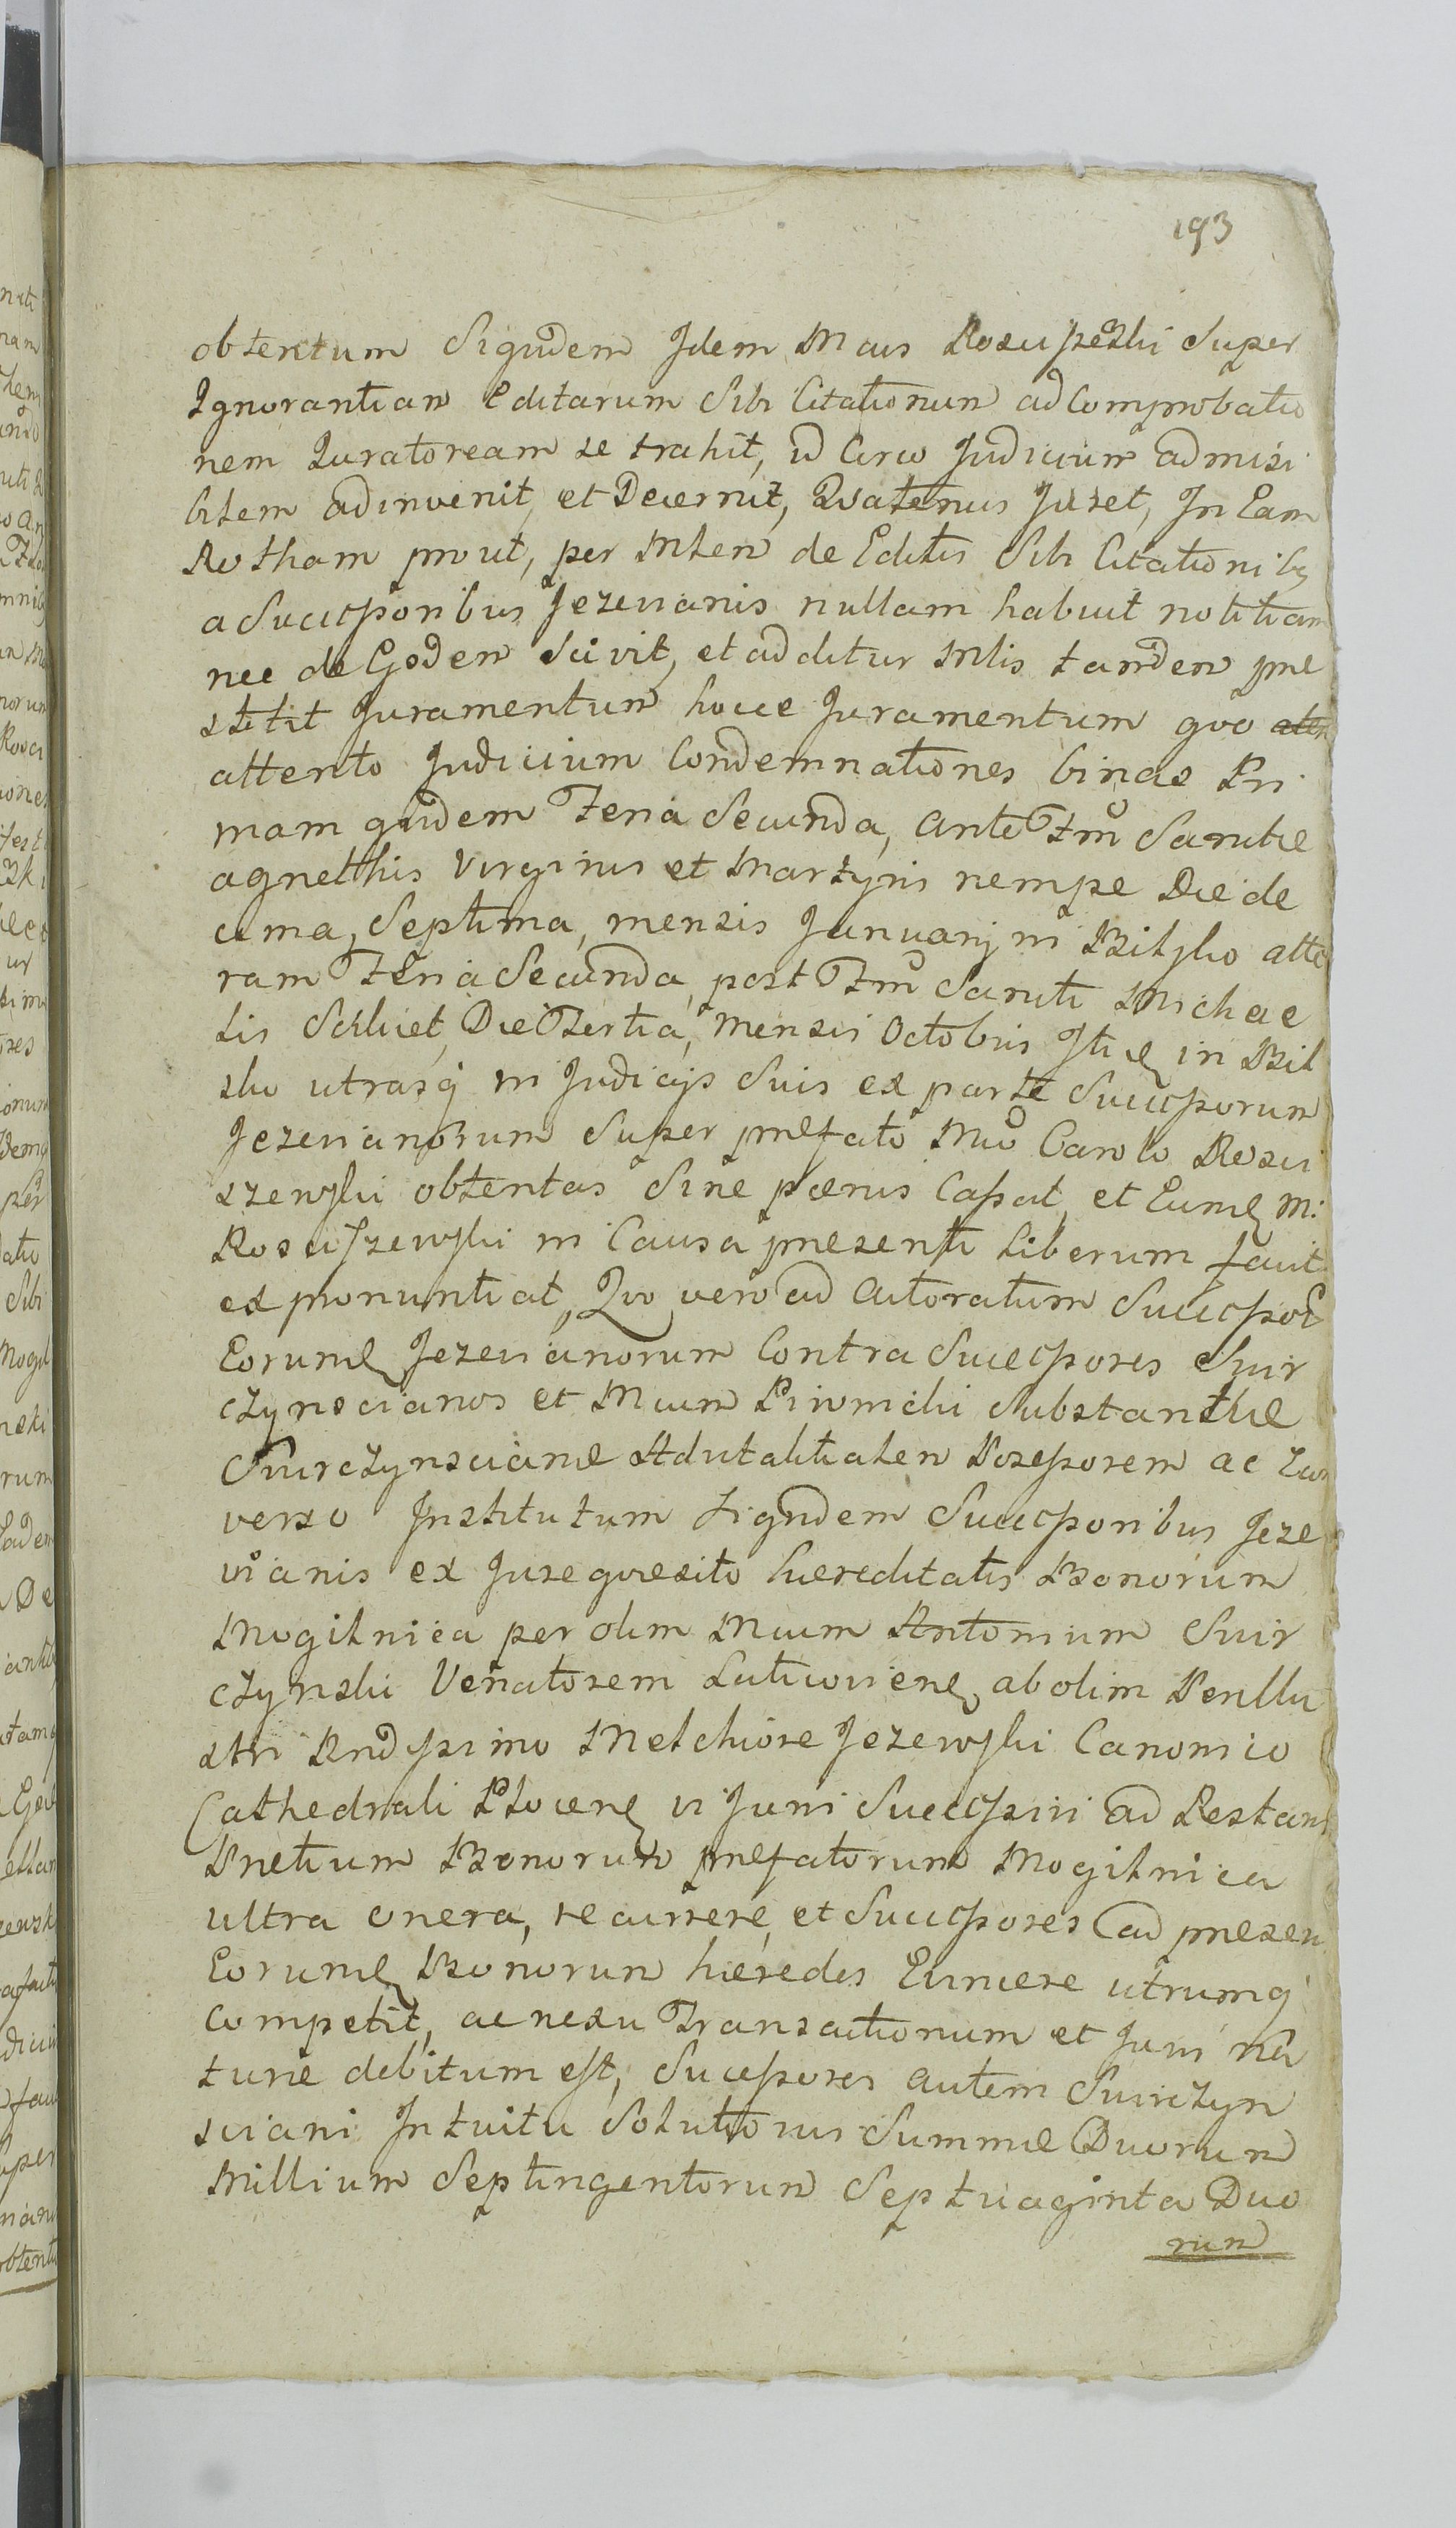 193
obtentum Siquidem Idem Mcus Rosciszewski Super
Ignorantiam Editarum Sibi Citationum ad Comprobatio
nem Juratoream se trahit, id Circo Judicium admisi
bilem adinvenit, et Decernit, Quatenus Juret, In Eam
Rotham prout, per Mlem de Editis Sibi Citationibq
a Successoribus Jezevianis nullam habuit notitiam
nec de Eodem Scivit, et additur Mlis tandem præ
stitit Juramentum hocce Juramentum quo
attento Judicium Condemnationes binas Pri
mam quidem Feria Secunda, ante Fm Sanctæ
agnethis Virginis et Martyris nempe Die de
cima, Septima, mensis Januarij in Bilsko alte
ram Feria Secunda, post Fm Sancti Michae
lis Scilicet, Die Tertia, mensis Octobris Itid in Bil
sko utrasq in Judicijs Suis ex parte Successorum
Jezevianorum Super præfato Mco Carolo Rosci
szewski obtentas Sine pænis Cassat, et Eund M:
Rosciszewski in Causa præsenti Liberum facit
ex pronuntiat, Quo vero ad Actoratum Successor
Eorund Jezevianorum Contra Successores Swir
czynscianos et Mcum Piwnicki Substantiæ
Swirczynscianæ Advitalitialem Possessorem ac Econ
verso Institutum Siquidem Successoribus Jeze
vianis ex Jure quæsito hæreditatis Bonorum
Mogilnica per olim Mcum Antonium Swir
czynski Venatorem Laticoviens, ab olim Perillu
stri Rndissimo Melchiore Jezewski Canonico
Cathedrali Plocens vi Juris Successivi ad Restans
Pretium Bonorum præfatorum Mogilnica
ultra onera, recurrere, et Successores ad præsen
Eorund Bonorum hæredes Evincere utrumq
Competit, ac nexu Transactionum et Juris na
turæ debitum est, Sucessores autem Swirczyn
sciani Intuitu Solutionis Summæ Duorum
Millium Septingentorum Septuaginta Duo
rum